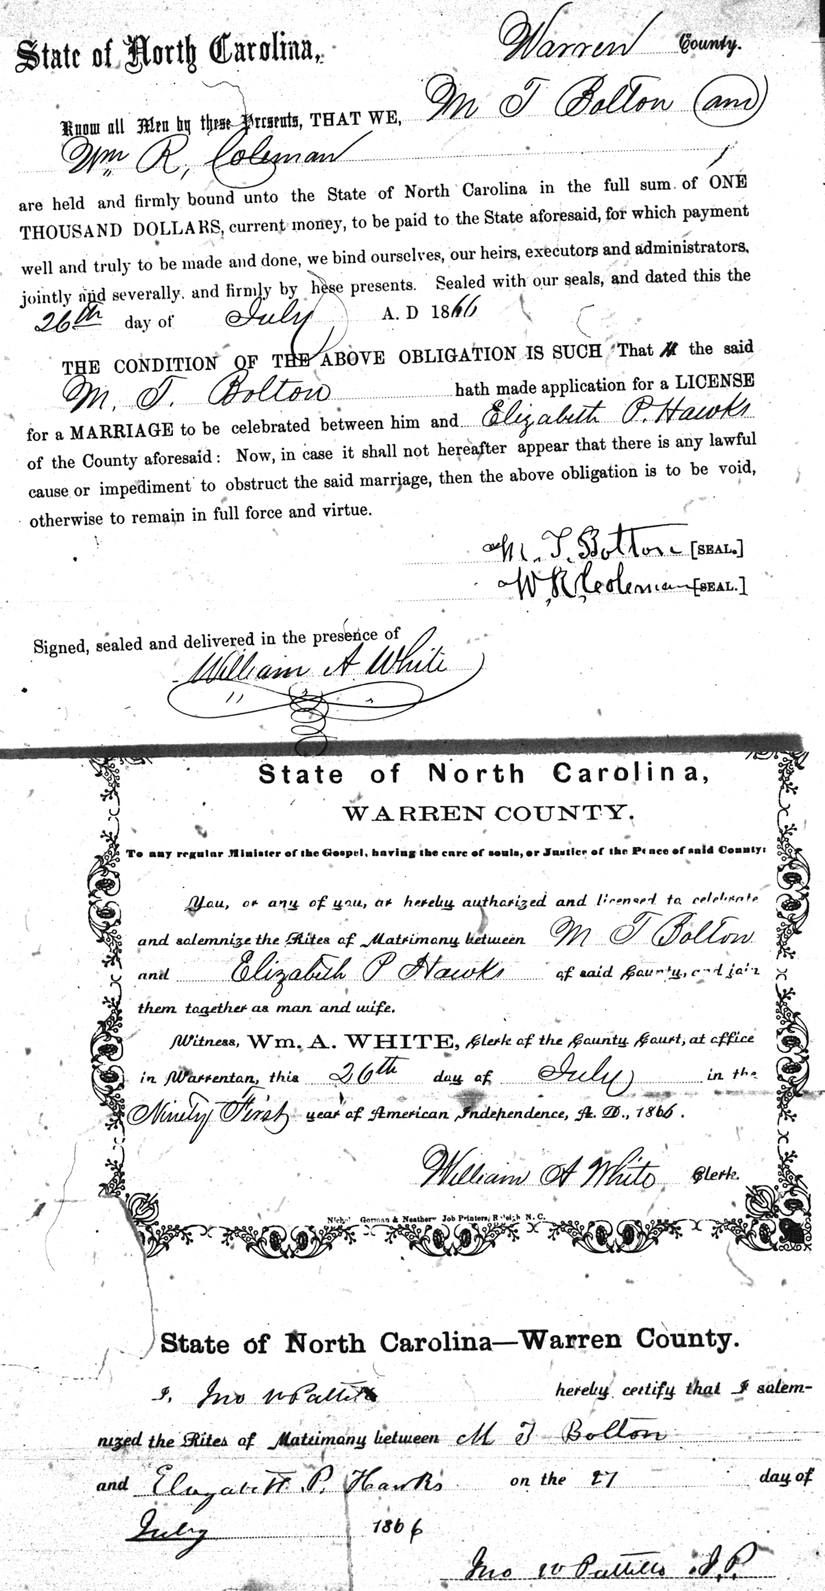 State of North Carolina, Warren County.
Know all Men by these Presents, THAT WE, M T Bolton and
Wm R, Coleman
are held and firmly bound unto the State of North Carolina in the full sum of ONE
THOUSAND DOLLARS, current money, to be paid to the State aforesaid, for which payment
well and truly to be made and done, we bind ourselves, our heirs, executors and administrators,
jointly and severally, and firmly by hese presents. Sealed with our seals, and dated this the
26th day of July A. D 1866
THE CONDITION OF THE ABOVE OBLIGATION IS SUCH That the said
M. T. Bolton hath made application for a LICENSE
for a MARRIAGE to be celebrated between him and Elizabeth P. Hawks
of the County aforesaid: Now, in case it shall not hereafter appear that there is any lawful
cause or impediment to obstruct the said marriage, then the above obligation is to be void,
otherwise to remain in full force and virtue.
M. T. Bolton [SEAL.]
W. R. Coleman [SEAL.]
Signed, sealed and delivered in the presence of
William A White
State of North Carolina,
WARREN COUNTY.
To any regular Minister of the Gospel, having the care of souls, or Justice of the Peace of said County:
You, or any of you, ar hereby authorized and licensed to celebrate
and solemnize the Rites of Matrimony between M T Bolton
and Elizabeth P Hawks of said County, and join
them together as man and wife.
Witness, Wm. A. WHITE, Clerk of the County Court, at office
in Warrenton, this 26th day of July in the
Ninety First year of American Independence, A. D., 1866.
William A White Clerk.
Gorman & Neathery Job Printers, Raleigh N. C.
State of North Carolina—Warren County.
I, Jno W Pattillo hereby certify that I solem-
nized the Rites of Matrimony between M T Bolton
and Elizabeth P. Hawks on the 27 day of
July 1866
Jno W Pattillo J.P.